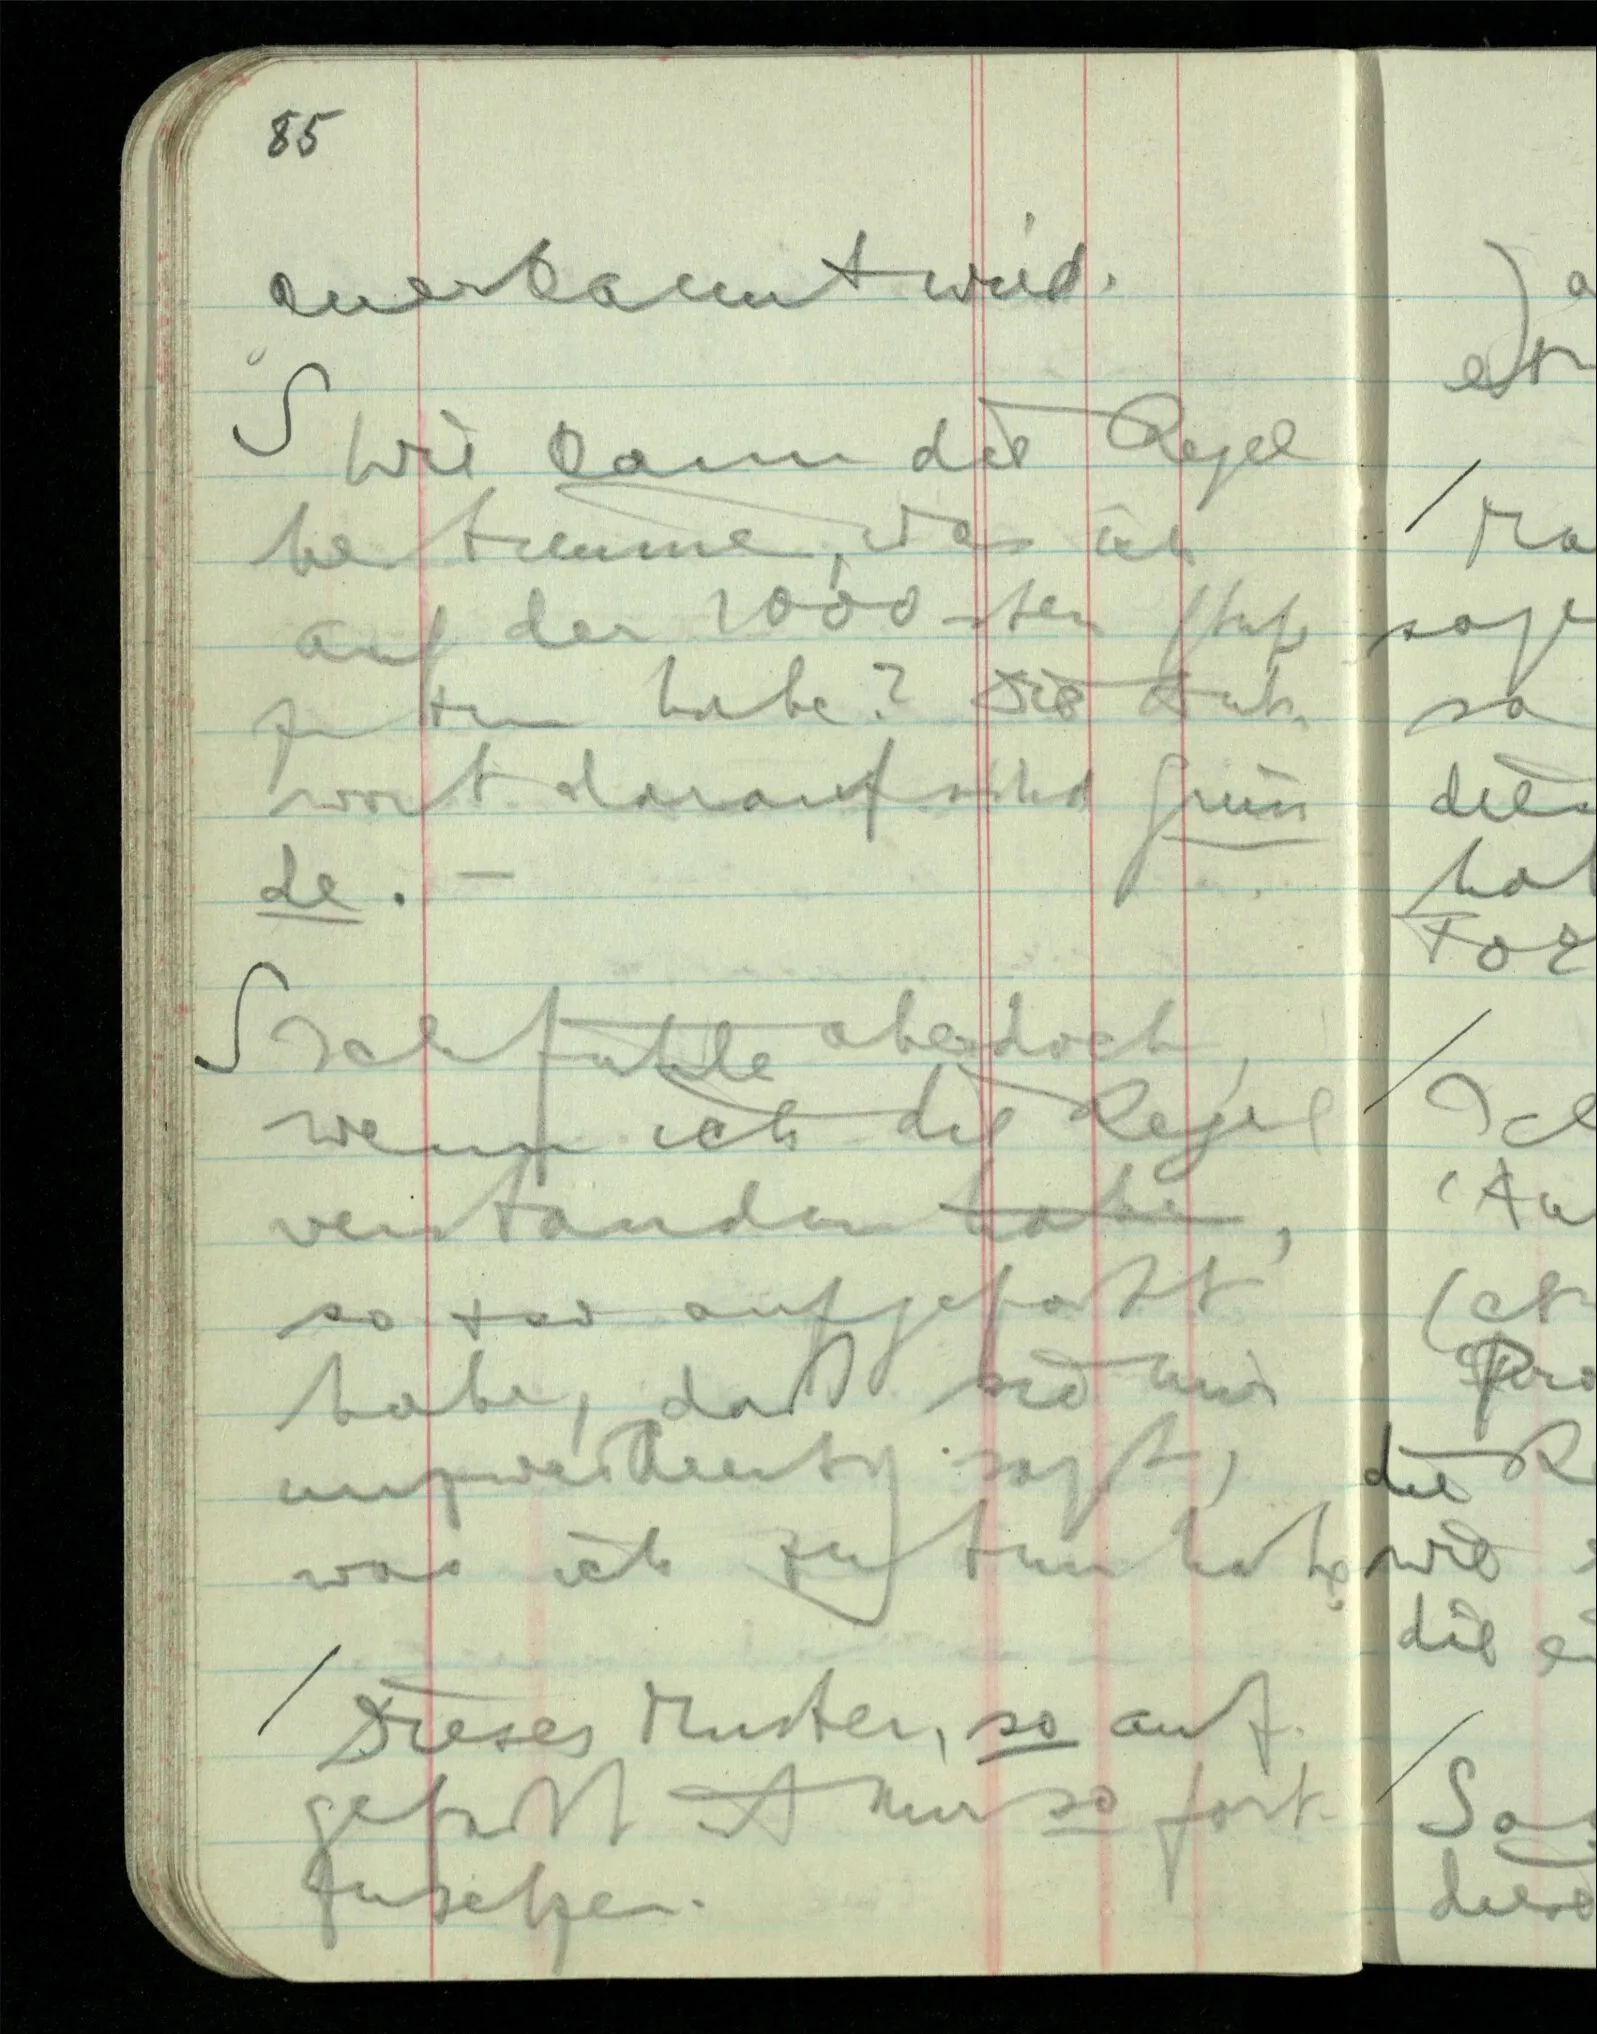 85
anerkannt wird.
∫ Wie kann die Regel
bestimmen, was ich
auf der 1000-sten Stufe
zu tun habe? Die Ant-
wort darauf sind Grün
de. –
∫ Ich fühle aber doch,
wenn ich die Regel
verstanden habe,
so aufgefaßt
habe, daß sie mir
unzweideutig sagt,
was ich zu tun habe.
/ Dieses Muster, so auf-
gefaßt ist nur so fort-
zusetzen.
/
so
die
/ Ich
die
wie
die
/